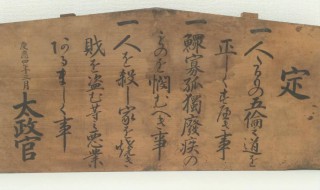 定
一人たるもの五倫之道を
正しくすへき事
一鰥寡孤獨廢疾の
ものを憫むへき事
一人を殺し家を焼き
財を盗む等之惡業
あるましく事
慶應四年三月
太政官